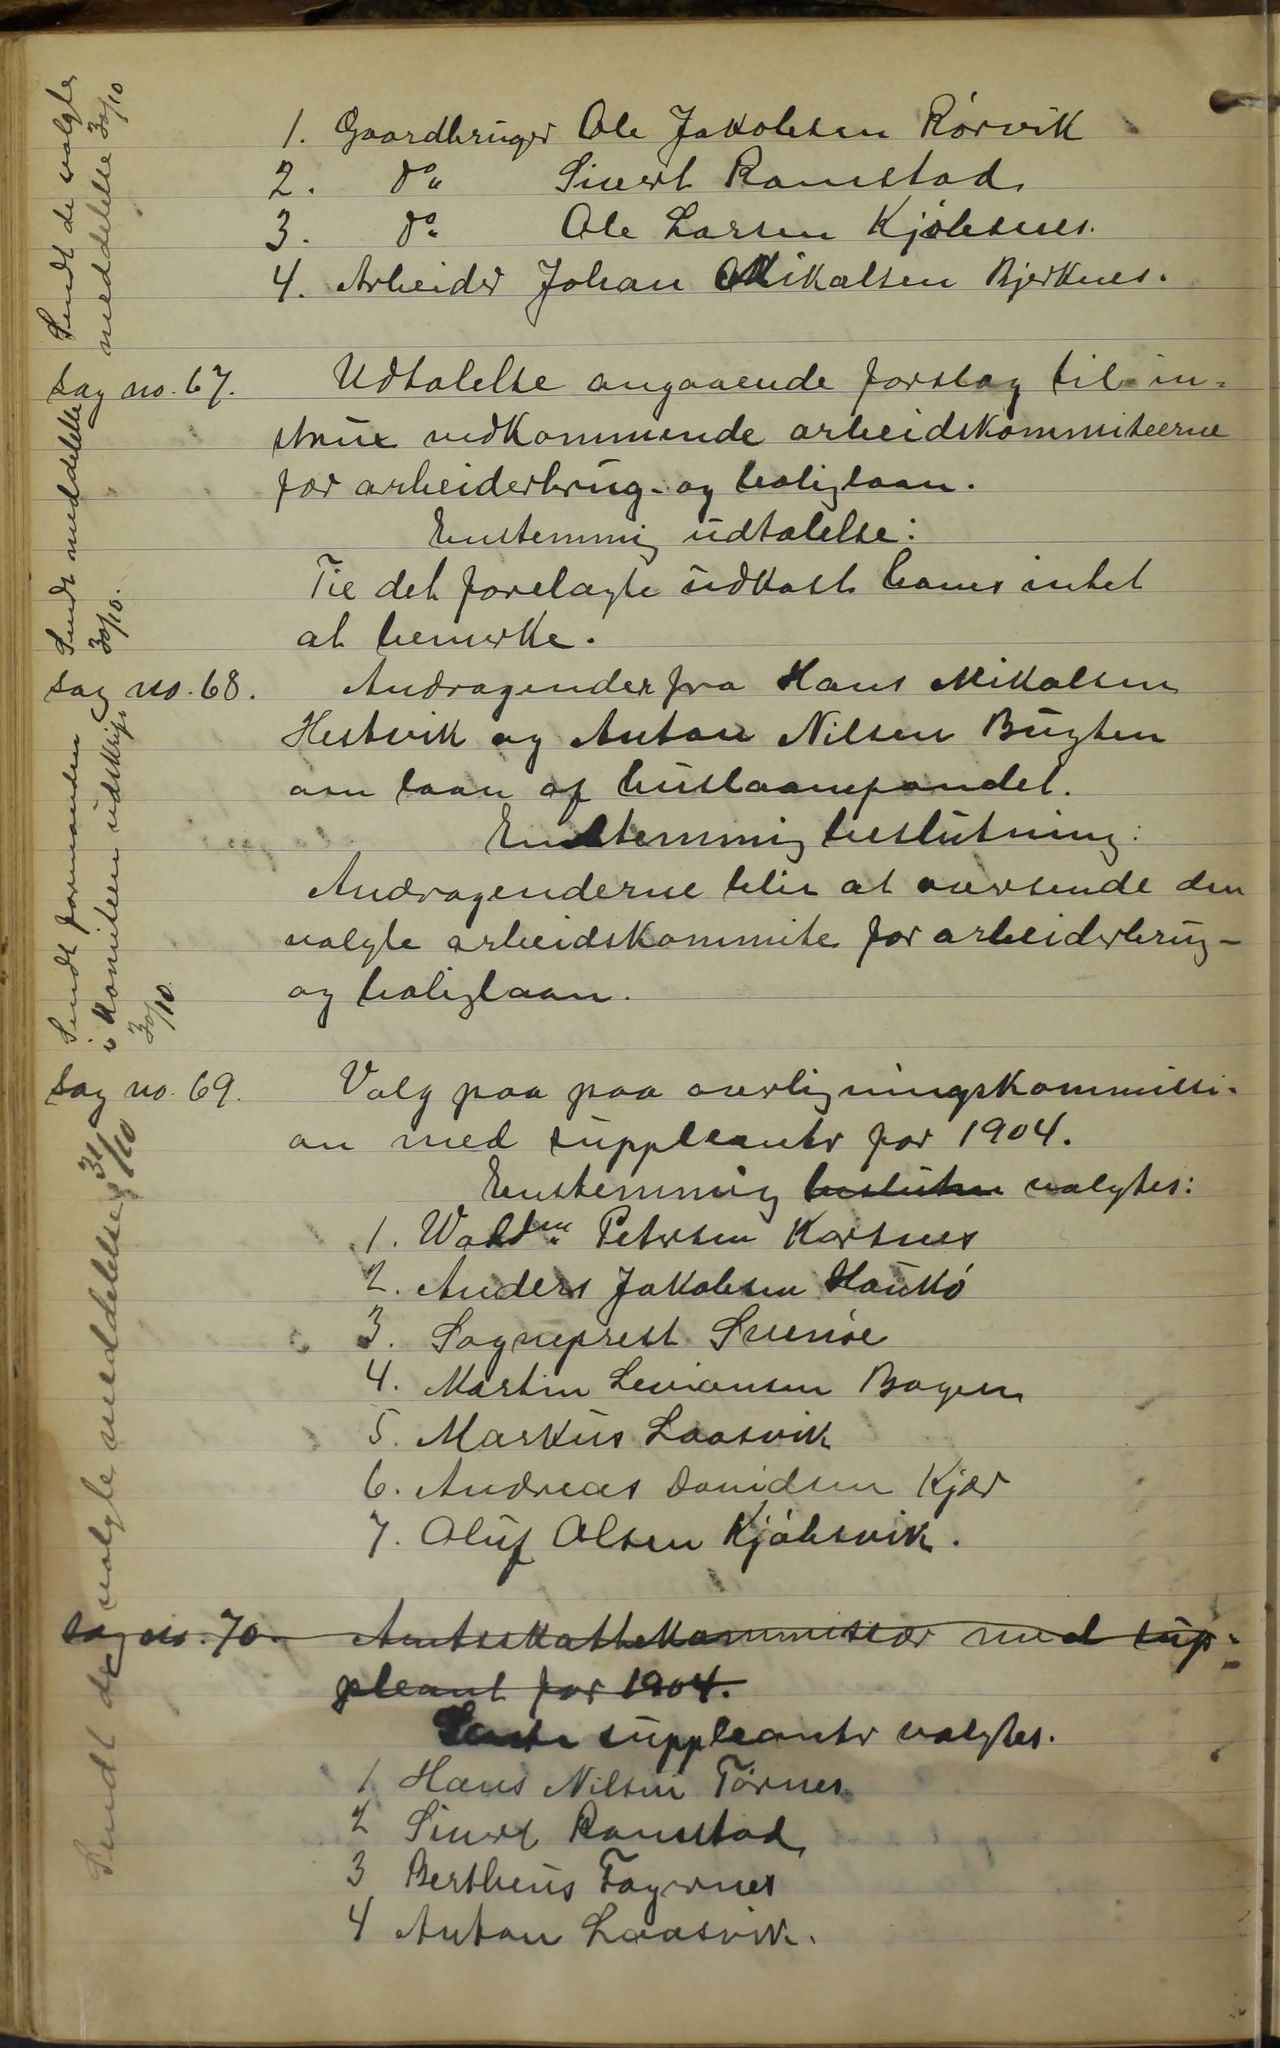 1. Gaardbruger Ole Jakobsen Rörvik
2. do „ Sivert Ramstad
3. do „ Ole Larsen Kjöbsnes.
4. Arbeider Johan Mikalsen Bjerknes.
Sendt de valgte
meddelelse 30/10
Sag no. 67. Udtalelse angaaende forslag til in-
strux vedkommende arbeidskommiteerne
for arbeiderbrug- og boliglaan.
Enstemmig udtalelse:
Til det forelagte udkast haves intet
at bemerke.
Sendt meddelelse
30/10.
Sag no. 68. Andragender fra Hans Mikalsen
Hestvik og Anton Nilsen Bugten
om laan af huslaanefondet.
Enstemmig beslutning:
Andragenderne blir at oversende den
valgte arbeidskommite for arbeiderbrug-
og boliglaan.
Sendt formanden
i komiteen udskrift
30/10
Sag no. 69. Valg paa paa overligningskommissi-
on med suppleanter for 1904.
Enstemmig beslutn valgtes:
1. Waldm. Petersen Korsnes
2. Anders Jakobsen Haukö
3. Sogneprest Svenöe
4. Martin Levionsen Bogen
5. Markus Laasvik
6. Andreas Davidsen Kjær
7. Oluf Olsen Kjöbsvik.
Sendt de valgte meddelelse 31/10
Sag no. 70. Amtsskattekommissær med sup-
pleant for 1904.
suppleanter valgtes.
1 Hans Nilsen Törnes
2 Sivert Ramstad
3 Bertheus Fagernes
4 Anton Laasvik.